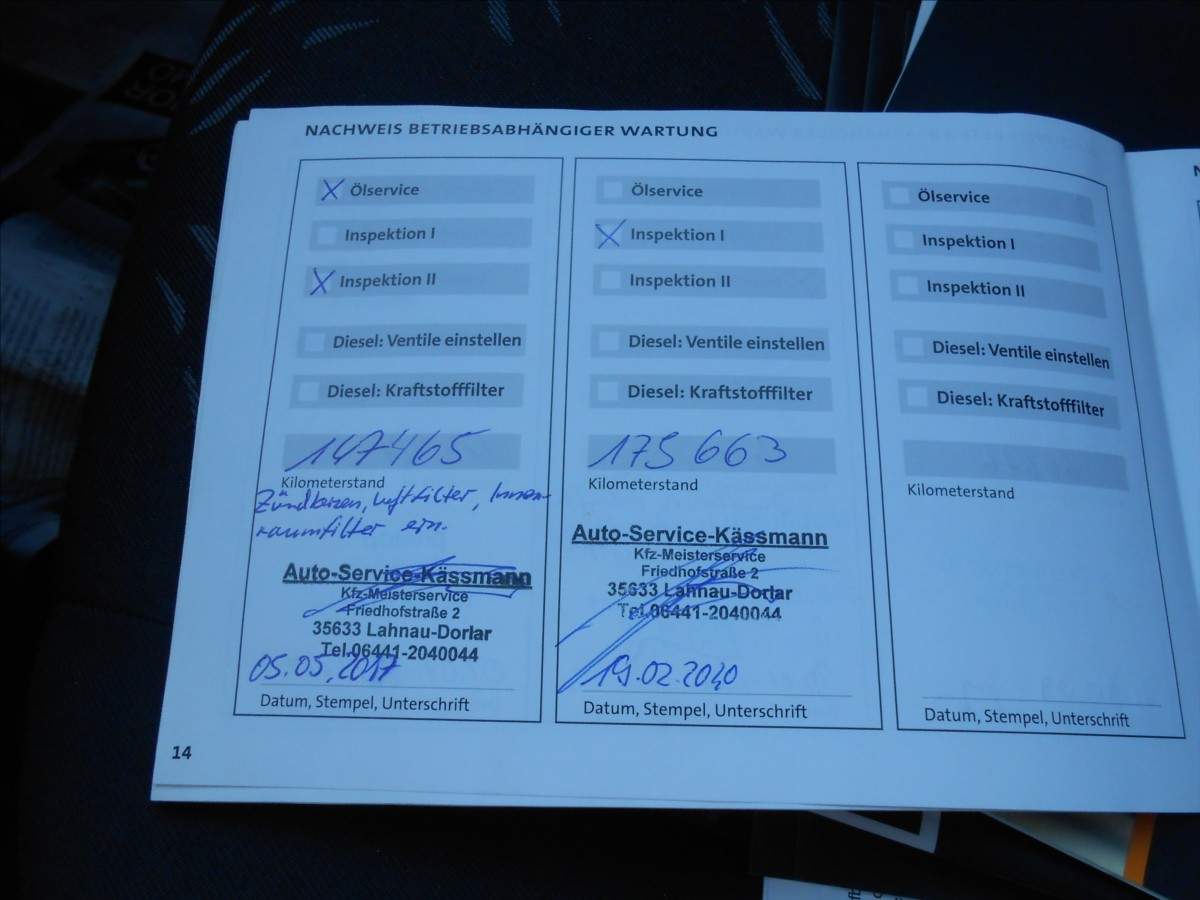 NACHWEIS BETRIEBSABHÄNGIGER WARTUNG
Ölservice
Inspektion I
Inspektion II
Diesel: Ventile einstellen
Diesel: Kraftstofffilter
147465
Kilometerstand
Zündkerzen, Luftfilter, Innen-
raumfilter ern.
Auto-Service-Kässmann
Kfz-Meisterservice
Friedhofstraße 2
35633 Lahnau-Dorlar
Tel.06441-2040044
05.05.2017
Datum, Stempel, Unterschrift
Ölservice
Inspektion I
Inspektion II
Diesel: Ventile einstellen
Diesel: Kraftstofffilter
175663
Kilometerstand
Auto-Service-Kässmann
Kfz-Meisterservice
Friedhofstraße 2
35633 Lahnau-Dorlar
Tel.06441-2040044
19.02.2020
Datum, Stempel, Unterschrift
Ölservice
Inspektion I
Inspektion II
Diesel: Ventile einstellen
Diesel: Kraftstofffilter
Kilometerstand
Datum, Stempel, Unterschrift
14